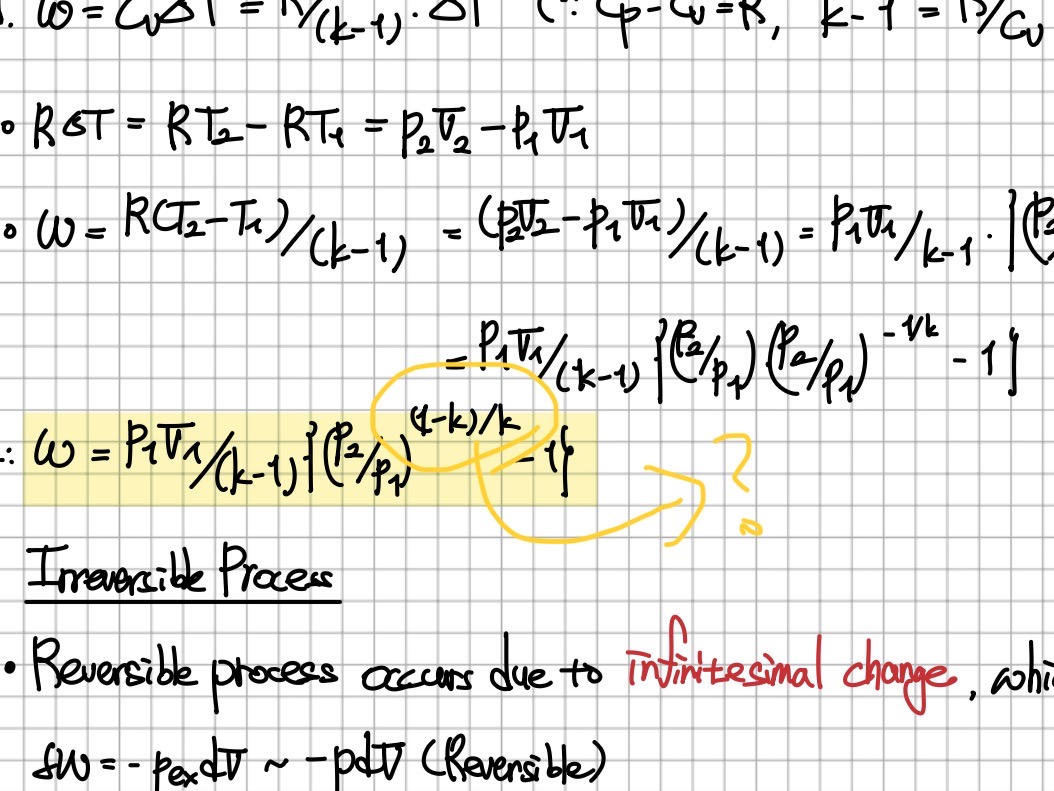 ω = CᵥΔT = R/(k-1) · ΔT (∵ Cp-Cᵥ=R, k-1 = R/Cᵥ
∘ RΔT = RT₂ - RT₁ = p₂V₂ - p₁V₁
∘ ω = R(T₂-T₁)/(k-1) = (p₂V₂-p₁V₁)/(k-1) = p₁V₁/k-1 · {(P₂
= P₁V₁/(k-1) {(P₂/p₁)(P₂/p₁)^(-1/k) - 1}
∴ ω = P₁V₁/(k-1) {(P₂/p₁)^((1-k)/k) - 1} ?
Irreversible Process
• Reversible process occurs due to infinitesimal change, whi
δW = -pₑₓdV ~ -pdV (Reversible)